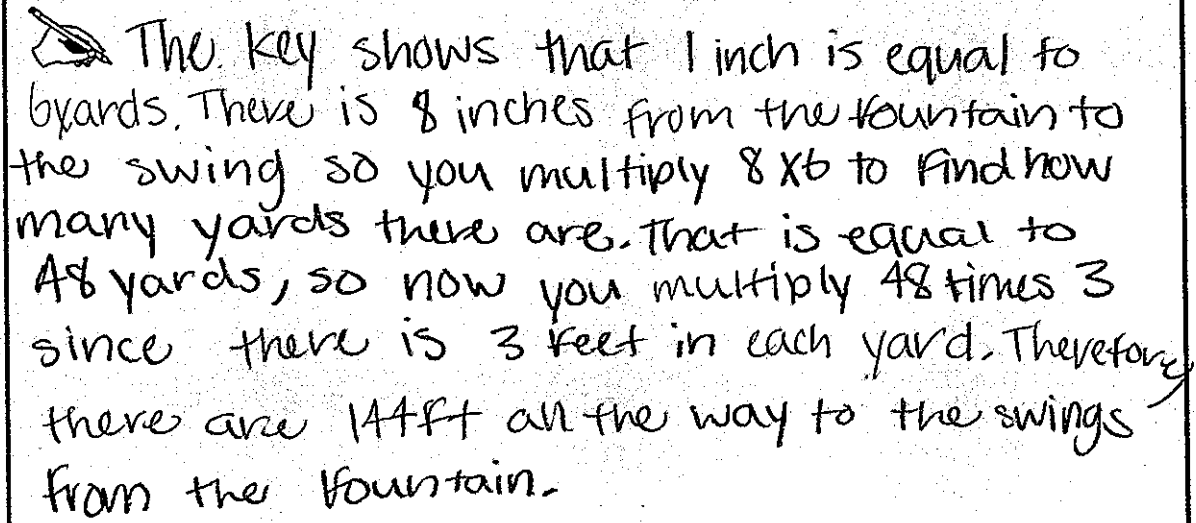 The key shows that 1 inch is equal to
6yards. There is 8 inches from the fountain to
the swing so you multiply 8x6 to find how
many yards there are. That is equal to
48 yards, so now you multiply 48 times 3
since there is 3 feet in each yard. Therefore,
there are 144ft all the way to the swings
from the fountain.